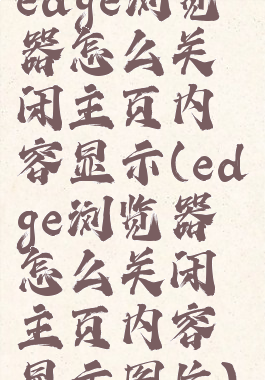 edge浏览
器怎么关
闭主页内
容显示(ed
ge浏览器
怎么关闭
主页内容
显示图片)